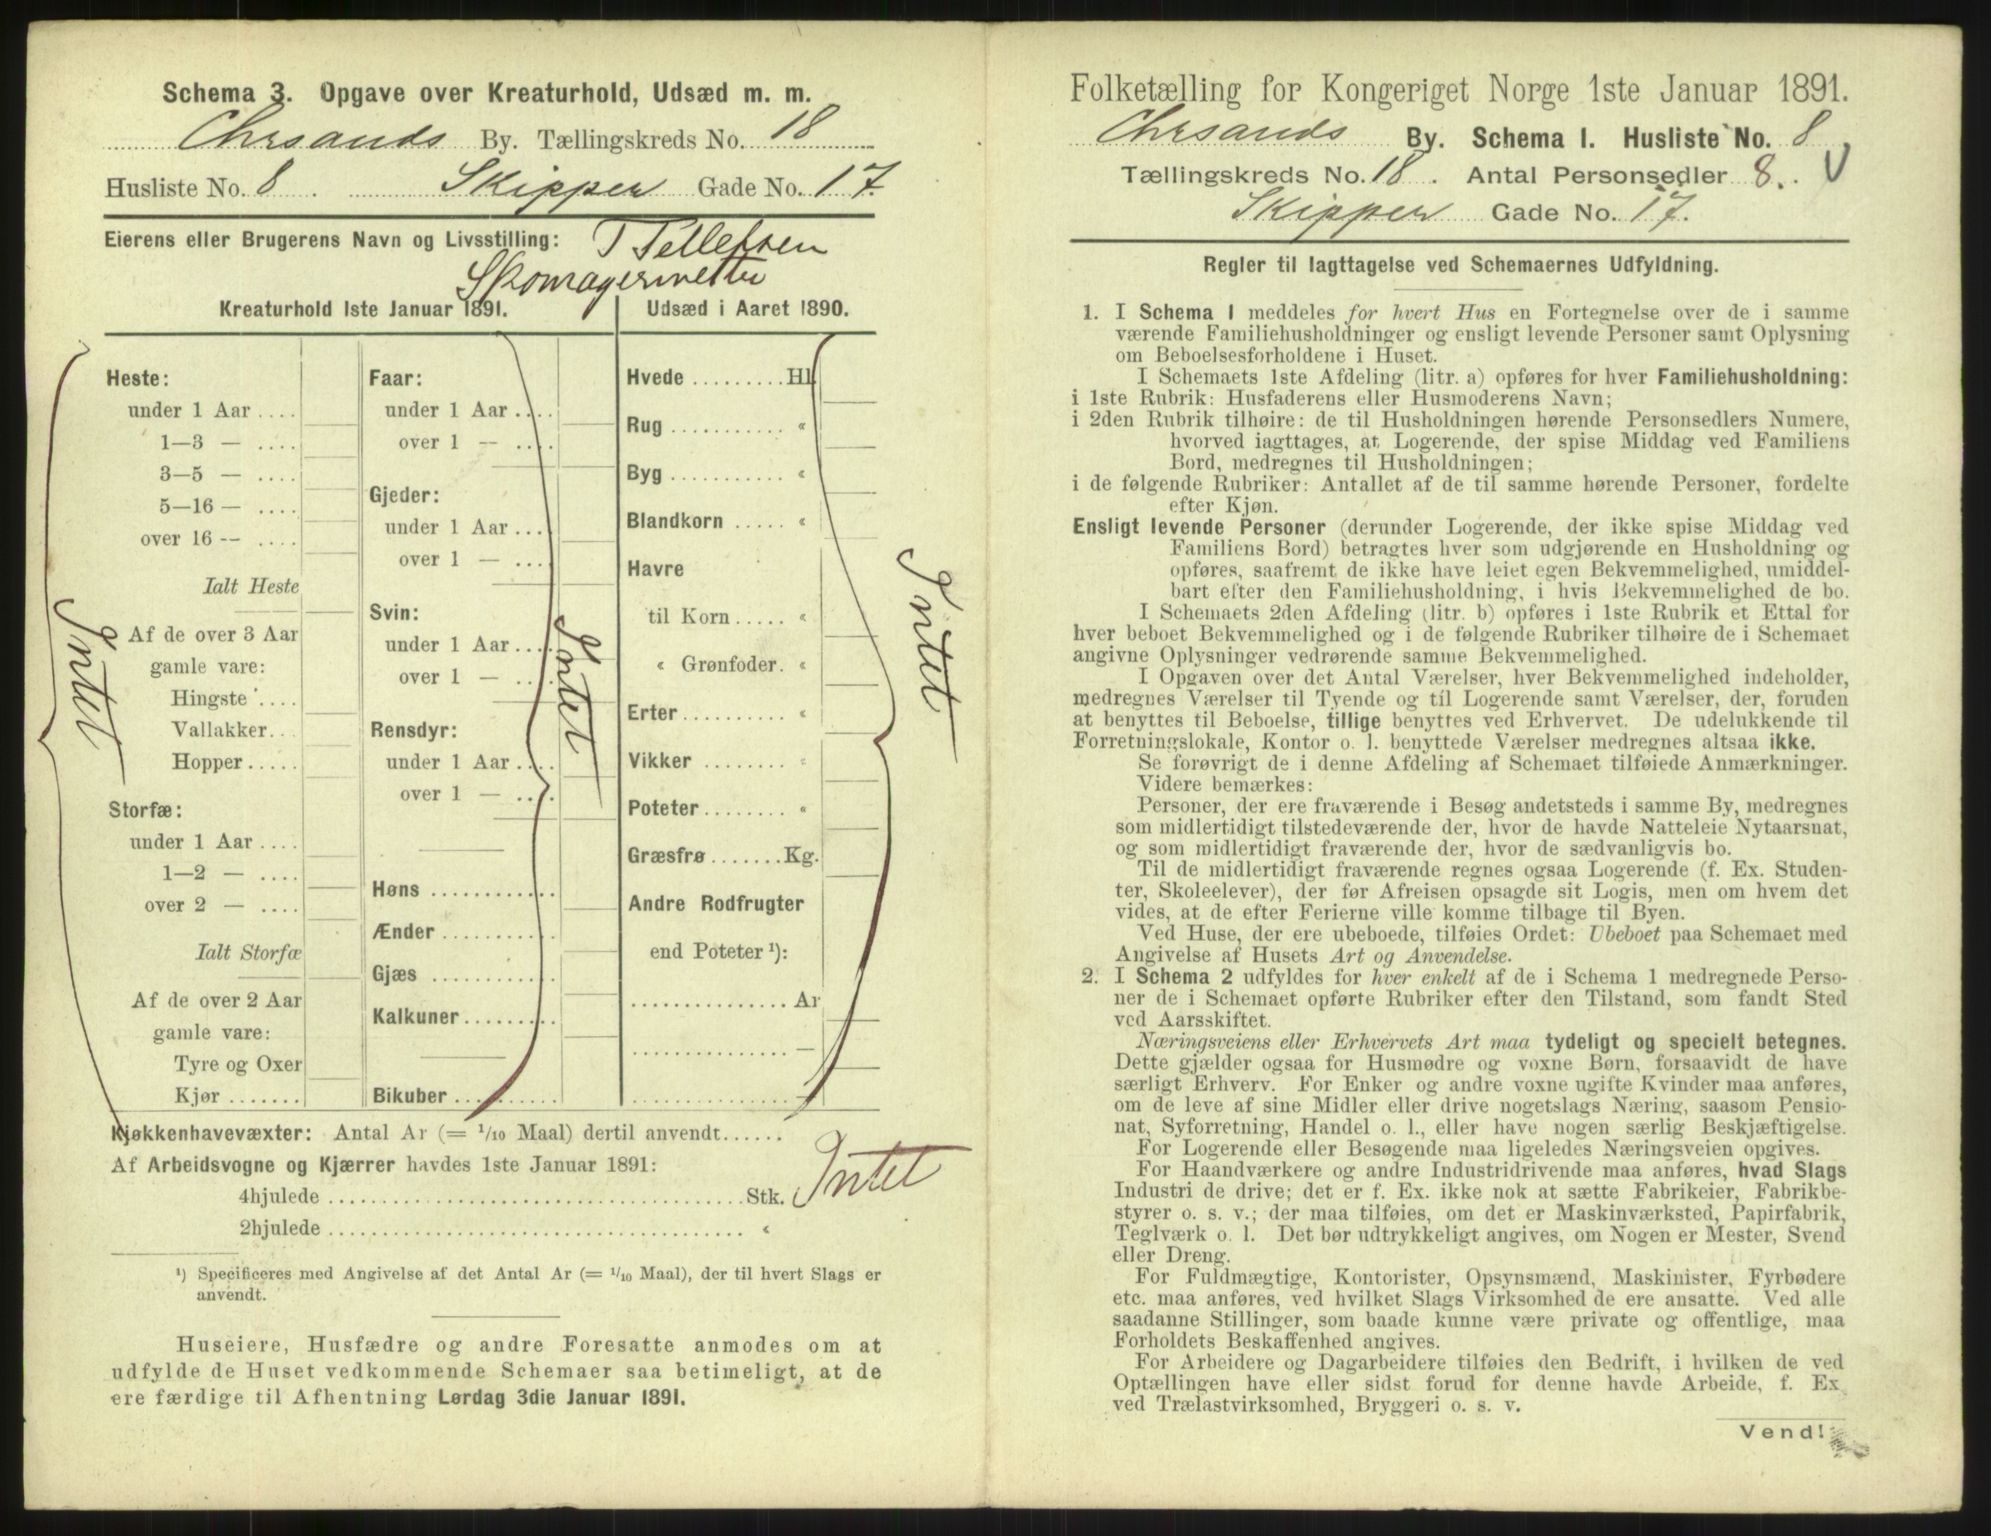 Schema 3. Opgave over Kreaturhold, Udsæd m. m.
Chrsands By. Tællingskreds No. 18
Husliste No. 8. Skipper Gade No. 17.
Eierens eller Brugerens Navn og Livsstilling: T Tellefsen
Skomagermester
Kreaturhold 1ste Januar 1891.
Heste:
under 1 Aar ....
1—3 — ....
3—5 — ....
5—16 — ....
over 16 — ....
Ialt Heste
Af de over 3 Aar
gamle vare:
Hingste ....
Vallakker...
Hopper .....
Storfæ:
under 1 Aar ....
1—2 — ....
over 2 — ....
Ialt Storfæ
Af de over 2 Aar
gamle vare:
Tyre og Oxer
Kjør .......
Intet
Faar:
under 1 Aar ....
over 1 — ....
Gjeder:
under 1 Aar ....
over 1 — ....
Svin:
under 1 Aar ....
over 1 — ....
Rensdyr:
under 1 Aar ....
over 1 — ....
Høns ............
Ænder ..........
Gjæs ...........
Kalkuner.........
Bikuber ..........
Intet
Udsæd i Aaret 1890.
Hvede ......... Hl.
Rug ........... «
Byg ........... «
Blandkorn ..... «
Havre
til Korn ..... «
« Grønfoder. «
Erter.......... «
Vikker ........ «
Poteter........ «
Græsfrø ....... Kg.
Andre Rodfrugter
end Poteter ¹):
............... Ar
............... —
............... —
Intet
Kjøkkenhavevæxter: Antal Ar (= 1/10 Maal) dertil anvendt......
Af Arbeidsvogne og Kjærrer havdes 1ste Januar 1891:
4hjulede ........................................ Stk. Intet
2hjulede ........................................ «
¹) Specificeres med Angivelse af det Antal Ar (= 1/10 Maal), der til hvert Slags er
anvendt.
Huseiere, Husfædre og andre Foresatte anmodes om at
udfylde de Huset vedkommende Schemaer saa betimeligt, at de
ere færdige til Afhentning Lørdag 3die Januar 1891.
Folketælling for Kongeriget Norge 1ste Januar 1891.
Chrsands By. Schema 1. Husliste No. 8
Tællingskreds No. 18. Antal Personsedler 8. V
Skipper Gade No. 17.
Regler til Iagttagelse ved Schemaernes Udfyldning.
1. I Schema 1 meddeles for hvert Hus en Fortegnelse over de i samme
værende Familiehusholdninger og ensligt levende Personer samt Oplysning
om Beboelsesforholdene i Huset.
I Schemaets 1ste Afdeling (litr. a) opføres for hver Familiehusholdning:
i 1ste Rubrik: Husfaderens eller Husmoderens Navn;
i 2den Rubrik tilhøire: de til Husholdningen hørende Personsedlers Numere,
hvorved iagttages, at Logerende, der spise Middag ved Familiens
Bord, medregnes til Husholdningen;
i de følgende Rubriker: Antallet af de til samme hørende Personer, fordelte
efter Kjøn.
Ensligt levende Personer (derunder Logerende, der ikke spise Middag ved
Familiens Bord) betragtes hver som udgjørende en Husholdning og
opføres, saafremt de ikke have leiet egen Bekvemmelighed, umiddel-
bart efter den Familiehusholdning, i hvis Bekvemmelighed de bo.
I Schemaets 2den Afdeling (litr. b) opføres i 1ste Rubrik et Ettal for
hver beboet Bekvemmelighed og i de følgende Rubriker tilhøire de i Schemaet
angivne Oplysninger vedrørende samme Bekvemmelighed.
I Opgaven over det Antal Værelser, hver Bekvemmelighed indeholder,
medregnes Værelser til Tyende og til Logerende samt Værelser, der, foruden
at benyttes til Beboelse, tillige benyttes ved Erhvervet. De udelukkende til
Forretningslokale, Kontor o. l. benyttede Værelser medregnes altsaa ikke.
Se forøvrigt de i denne Afdeling af Schemaet tilføiede Anmærkninger.
Videre bemærkes:
Personer, der ere fraværende i Besøg andetsteds i samme By, medregnes
som midlertidigt tilstedeværende der, hvor de havde Natteleie Nytaarsnat,
og som midlertidigt fraværende der, hvor de sædvanligvis bo.
Til de midlertidigt fraværende regnes ogsaa Logerende (f. Ex. Studen-
ter, Skoleelever), der før Afreisen opsagde sit Logis, men om hvem det
vides, at de efter Ferierne ville komme tilbage til Byen.
Ved Huse, der ere ubeboede, tilføies Ordet: Ubeboet paa Schemaet med
Angivelse af Husets Art og Anvendelse.
2. I Schema 2 udfyldes for hver enkelt af de i Schema 1 medregnede Perso-
ner de i Schemaet opførte Rubriker efter den Tilstand, som fandt Sted
ved Aarsskiftet.
Næringsveiens eller Erhvervets Art maa tydeligt og specielt betegnes.
Dette gjælder ogsaa for Husmødre og voxne Børn, forsaavidt de have
særligt Erhverv. For Enker og andre voxne ugifte Kvinder maa anføres,
om de leve af sine Midler eller drive nogetslags Næring, saasom Pensio-
nat, Syforretning, Handel o. l., eller have nogen særlig Beskjæftigelse.
For Logerende eller Besøgende maa ligeledes Næringsveien opgives.
For Haandværkere og andre Industridrivende maa anføres, hvad Slags
Industri de drive; det er f. Ex. ikke nok at sætte Fabrikeier, Fabrikbe-
styrer o. s. v.; der maa tilføies, om det er Maskinværksted, Papirfabrik,
Teglværk o. l. Det bør udtrykkeligt angives, om Nogen er Mester, Svend
eller Dreng.
For Fuldmægtige, Kontorister, Opsynsmænd, Maskinister, Fyrbødere
etc. maa anføres, ved hvilket Slags Virksomhed de ere ansatte. Ved alle
saadanne Stillinger, som baade kunne være private og offentlige, maa
Forholdets Beskaffenhed angives.
For Arbeidere og Dagarbeidere tilføies den Bedrift, i hvilken de ved
Optællingen have eller sidst forud for denne havde Arbeide, f. Ex
ved Trælastvirksomhed, Bryggeri o. s. v.
Vend!